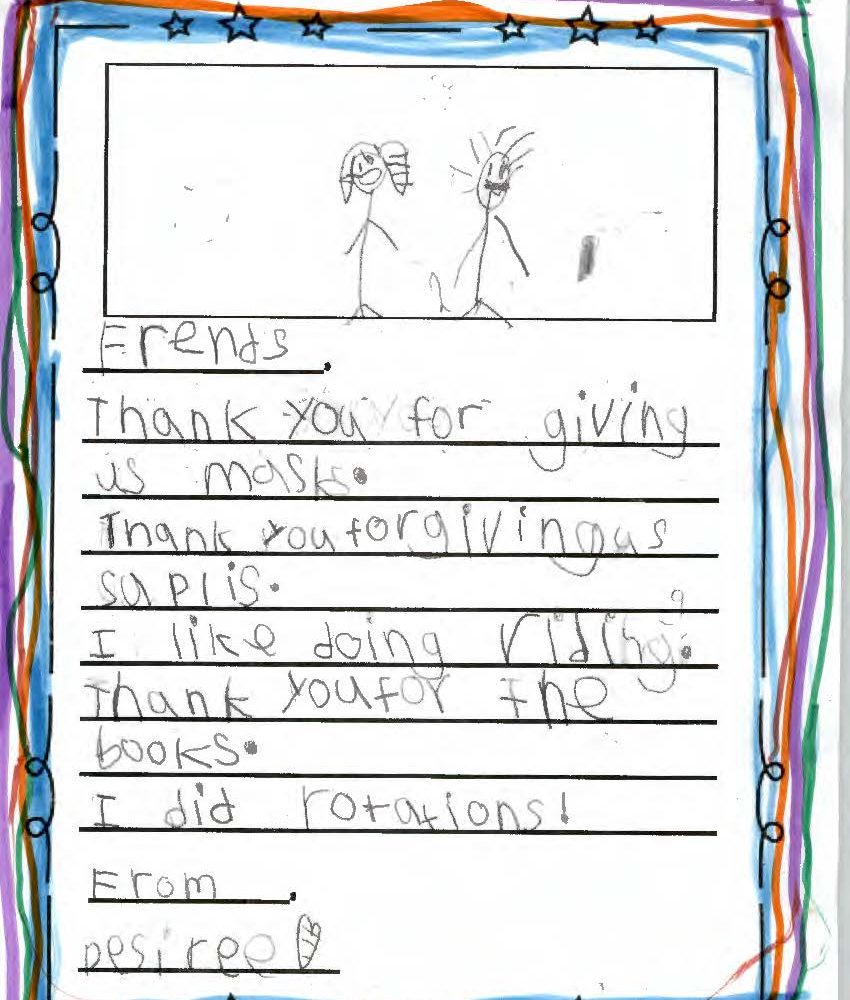 Frends,
Thank you for giving
us masks.
Thank you for giving us
saplis.
I like doing riding.
Thank you for the
books.
I did rotations!
From,
Desiree